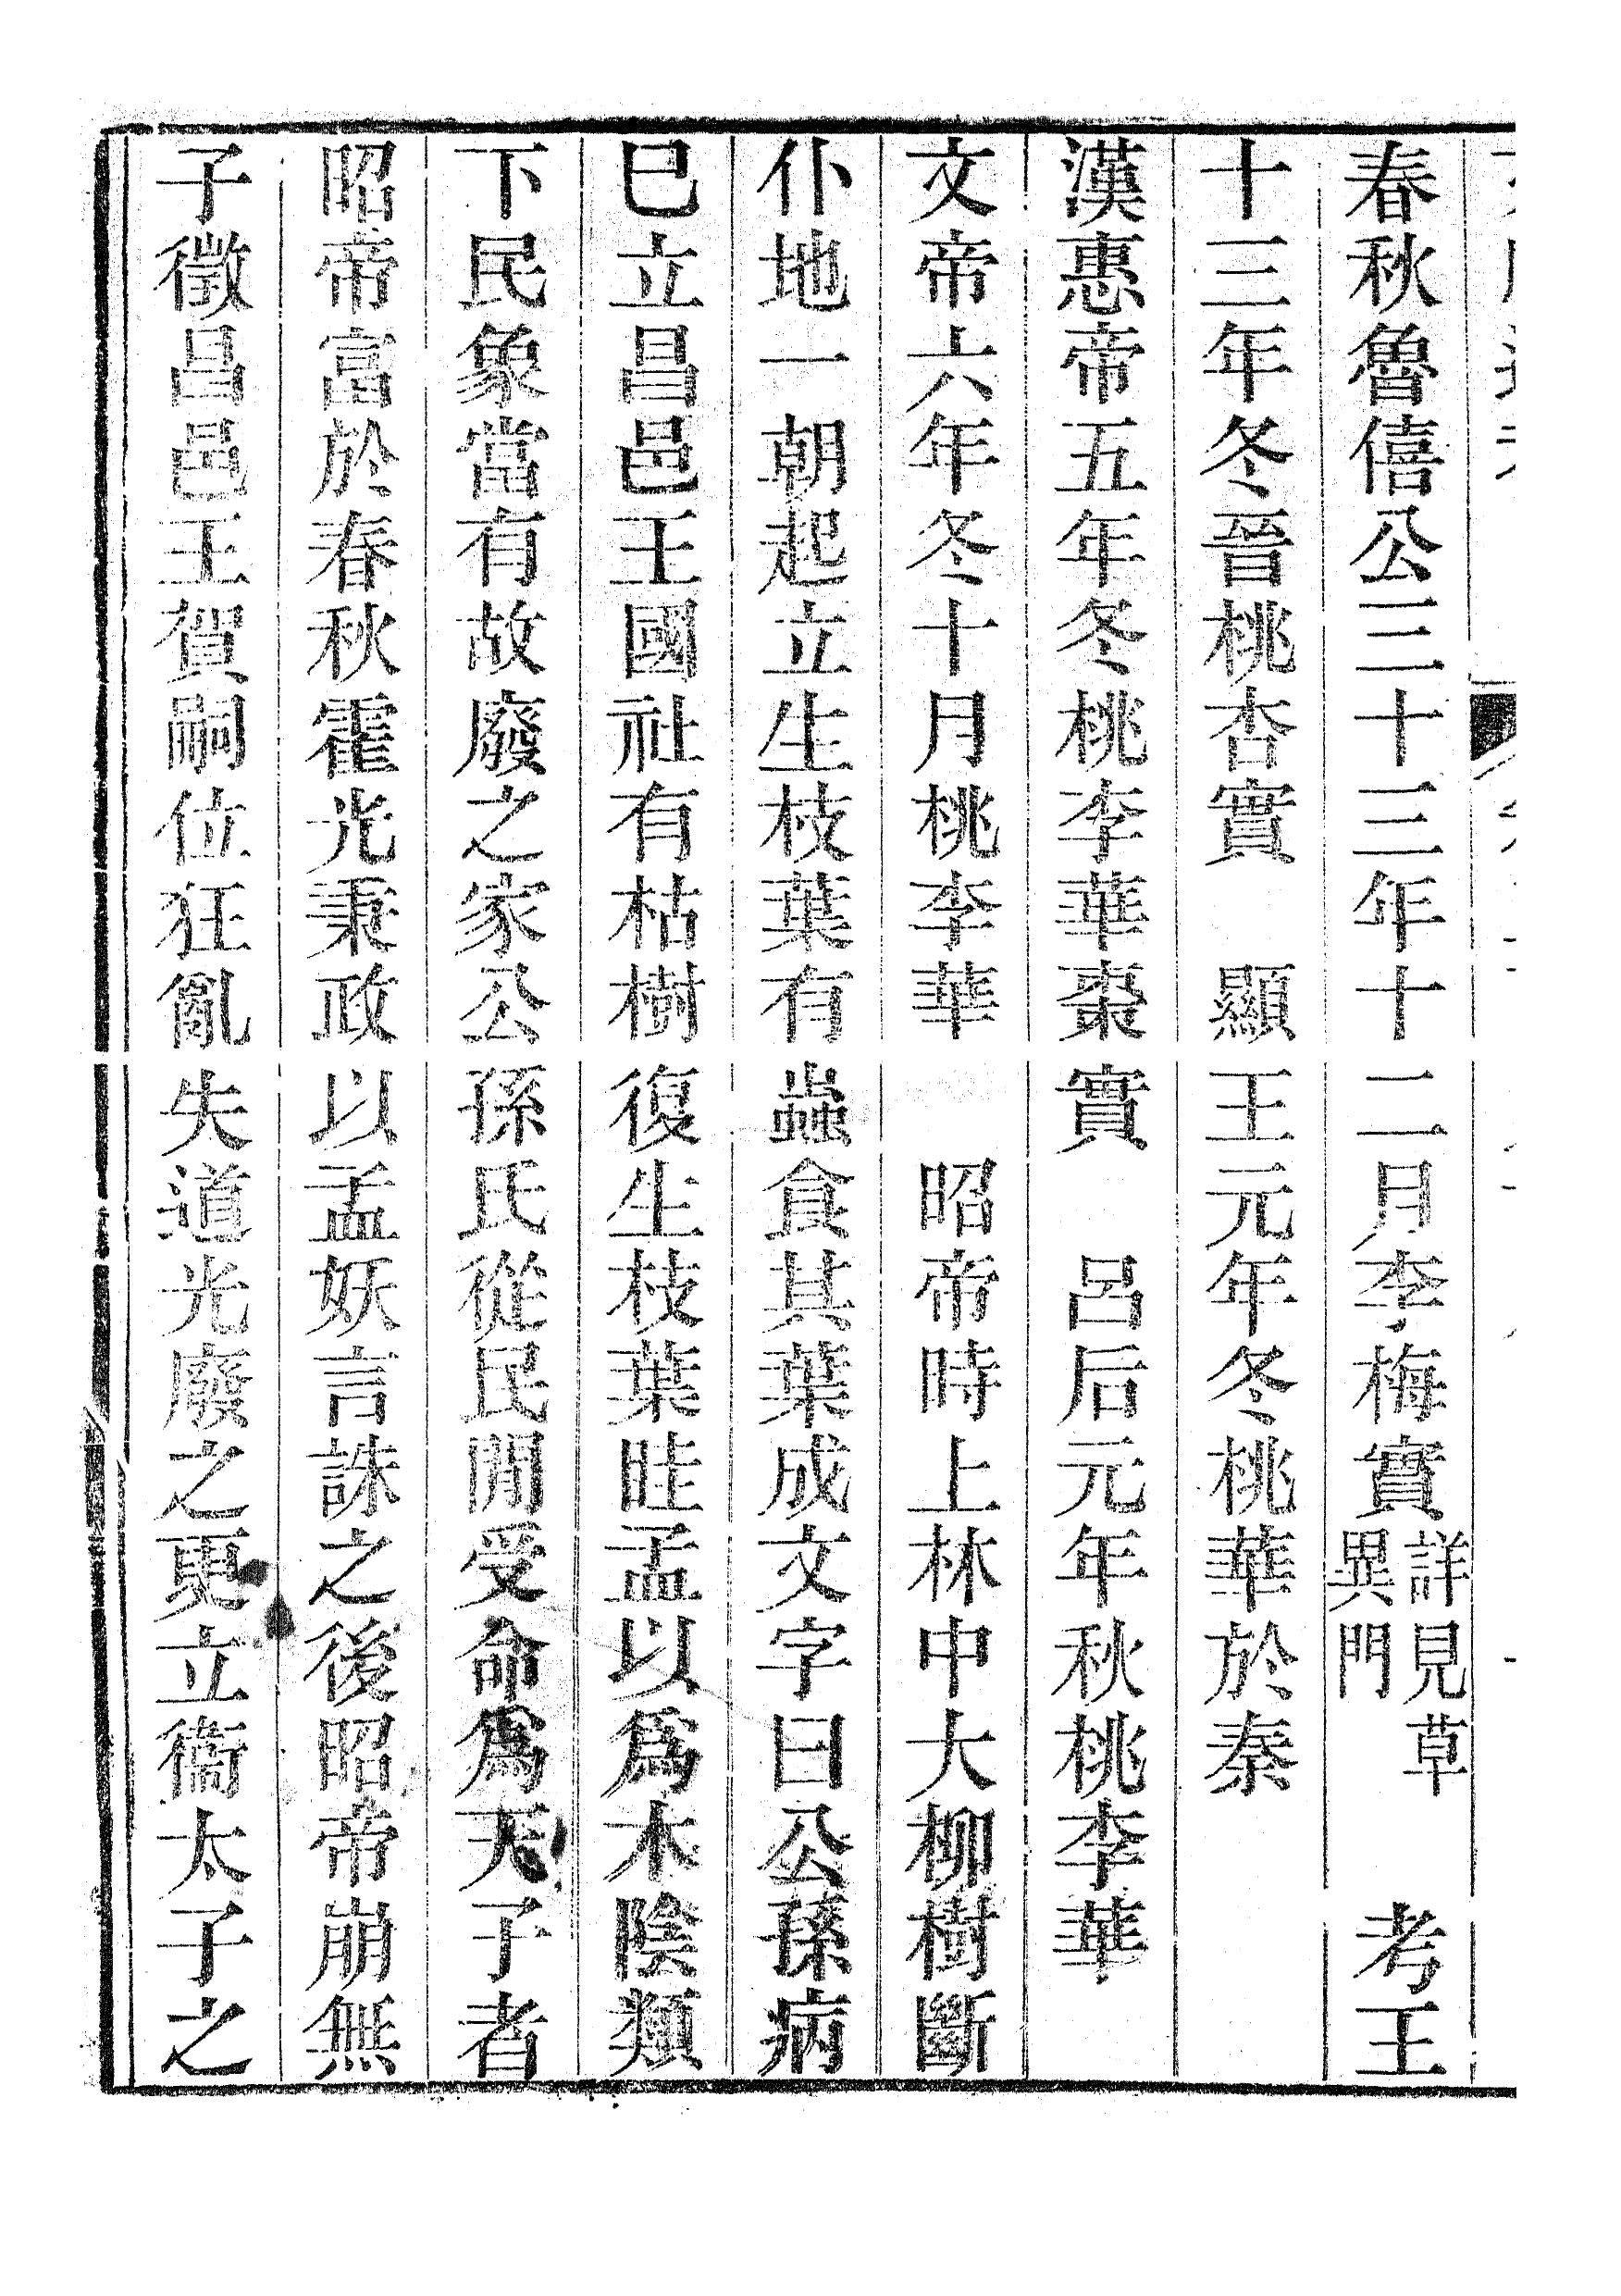 春秋魯僖公三十三年十二月李梅實詳見草異門　考王
十三年冬晉桃杏實　顯王元年冬桃華於秦
漢惠帝五年冬桃李華棗實　呂后元年秋桃李華
文帝六年冬十月桃李華　昭帝時上林中大柳樹斷
仆地一朝起立生枝葉有蟲食其葉成文字曰公孫病
巳立昌邑王國社有枯樹復生枝葉眭孟以爲木陰類
下民象當有故廢之家公孫氏從民閒受命爲天子者
昭帝富於春秋霍光秉政以孟妖言誅之後昭帝崩無
子徵昌邑王賀嗣位狂亂失道光廢之更立衞太子之